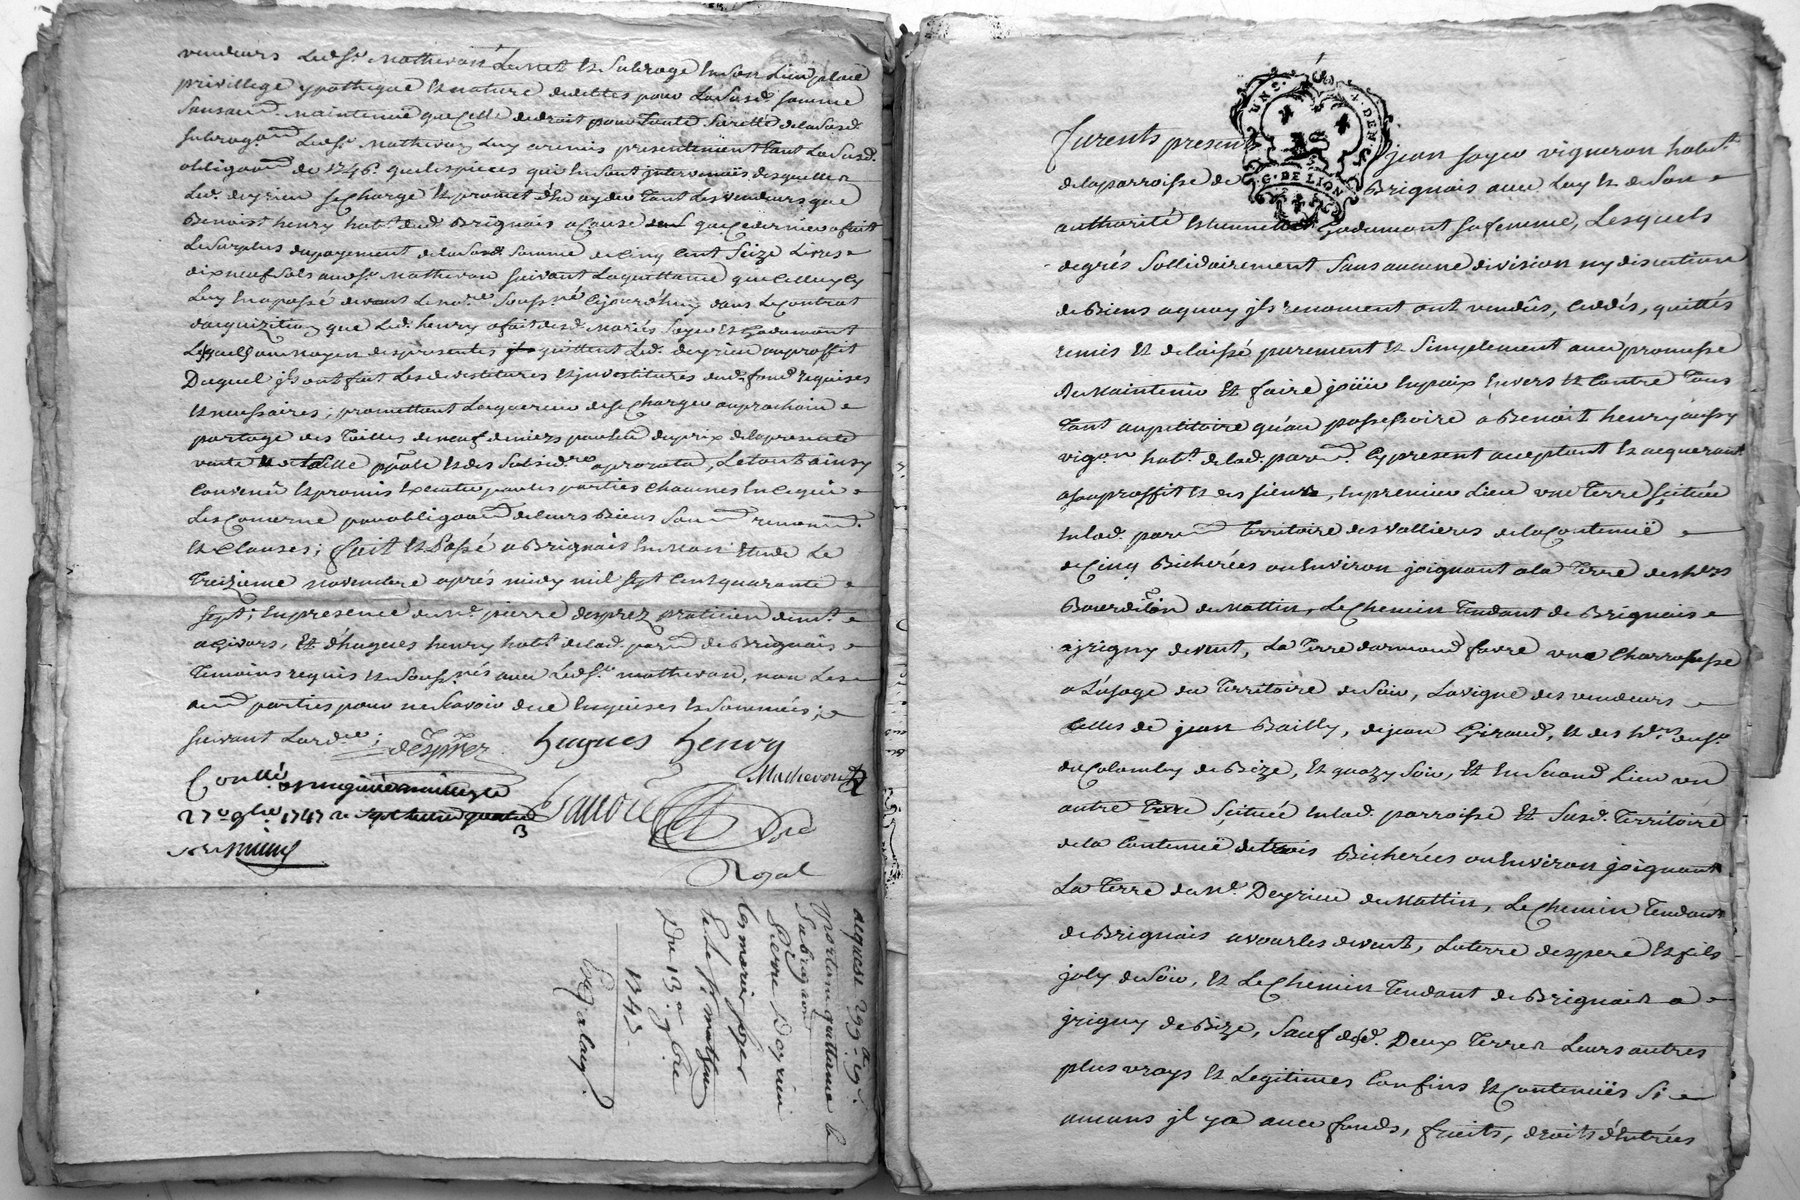 vendeurs ledsr. Mathevon Lemet et Subroge en son Lieu place
privillege ypotheque et nature de dettes pour La Susd. somme
Sans aud. Maintenue que Celle de droit pour toute Surette de la Susd.
Subrogaon. Ledsr. Mathevon luy a remis presentement tant La Susd.
obligaon. de 1746. que les pieces qui en sont intervenues desquelles
Led. deyrieu se charge et promet d'en ayder tant Les vendeurs que
Benoist henry habt. dud. Brignais a Cause que Ce dernier a fait
Le Surplus du payement de la Susd. Somme de Cinq Cent Seize Livres
dixneuf Sols audsr. Mathevon suivant La quittance que Celluy Cy
Luy en a passé devant Le nore. Soussné. Cejourd'huy dans Le Contrat
d'acquizition que Led. henry a fait desd. Mariés Soyeu et Godemont
Lesquels au moyen des presentes quittent Led. deyrieu au proffit
Duquel jls ont fait Les devestitures et jnvestitures dud. fond requises
et necessaires; promettant Lacquereur de se Charger au prochain
partage des Tailles de neuf deniers pour livre du prix de la presente
vente et des Subsidres. aprorata, Le tout ainsy
Convenû et promis Executer par les parties Chacunes En Ce qui
Les Concerne par obligaon. de leurs Biens renonon.
et Clauses; fait et Passé a Brignais En mon Etude Le
Treizieme novembre aprés midy mil sept Cent quarante
sept; En presence de Me. pierre desprez praticien demt.
a Givors, et d'hugues henry habt. de lad. parre. de Brignais
Temoins requis et Soussnés avec Ledsr. mathevon, non Les
aud. parties pour ne Scavoir de ce Enquises et Sommées;
suivant Lordce;
desprez hugues henry
Mathevon
Conllé
27 9bre 1747
Royal
acquest
portant quittance &
Subrogaon
Pierre Deyrieu
Les mariés soyeu
& le sr. mathevon
Du 13e 9bre
1747
Jurents presents jean soyeu vigneron habt.
de la parroisse de Brignais avec Luy et de Son
authorité Godemont sa femme, Lesquels
de grés Sollidairement Sans aucune division ny discution
de Biens a quoy jls renoncent ont vendûs, Ceddés, quittés
remis et delaissé purement et Simplement avec promesse
de Maintenir et faire jouir En paix Envers et Contre Tous
Tant au petitoire qu'au possessoire a Benoit henry aussy
vigon habt. de lad. parre. Cy present acceptant et acquerant
a son proffit et des siens, En premier Lieu une Terre Scituée
En lad. parre. Territoire des vallieres de la Contenuë
de Cinq Bicherées ou Environ joignant a la Terre des hers
Bourdillon de Mattin, Le Chemin Tendant de Brignais
a jrigny de vent, La Terre darmand favre une Charrasse
a L'usage du Territoire de Soir, La vigne des vendeurs
Celles de jean Bailly, de jean Giraud, et des hers. dusr.
de Colomby de Bize, et quazy Soir, et En Second Lieu un
autre Terre Scituée En lad. parroisse et Susd. Territoire
de la Contenuë de trois Bicherées ou Environ joignant
La Terre du Me. Deyrieu de Mattin, Le Chemin Tendant
de Brignais a vourles de vent, La terre des pere et fils
joly de Soir, et Le Chemin Tendant de Brignais a
jrigny de Bize, Sauf desd. Deux Terres Leurs autres
plus vrays et Legitimes Confins et Contenuës Si
aucuns jl y a avec fonds, fruits, droits d'Entrées
G. DE LION